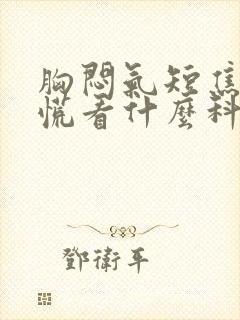 胸悶氣短焦
慌看什麼科
鄧衛平